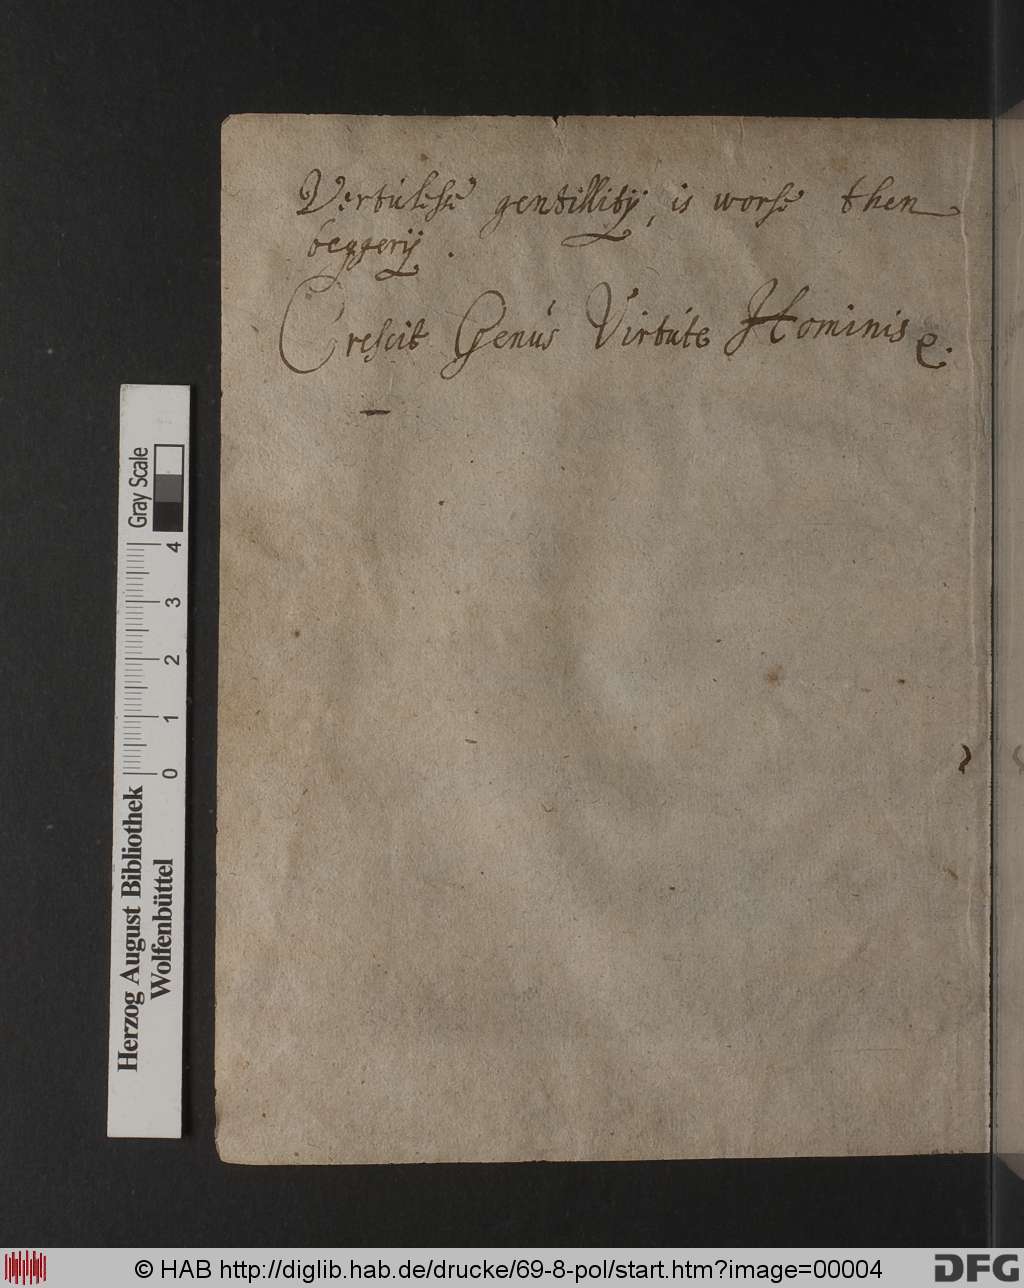 Vertulesse gentillitij, is worse then
beggerij.
Crescit Genus Virtute Hominis
Gray Scale
4
3
2
1
0
Herzog August Bibliothek
Wolfenbüttel
© HAB http://diglib.hab.de/drucke/69-8-pol/start.htm?image=00004
DFG